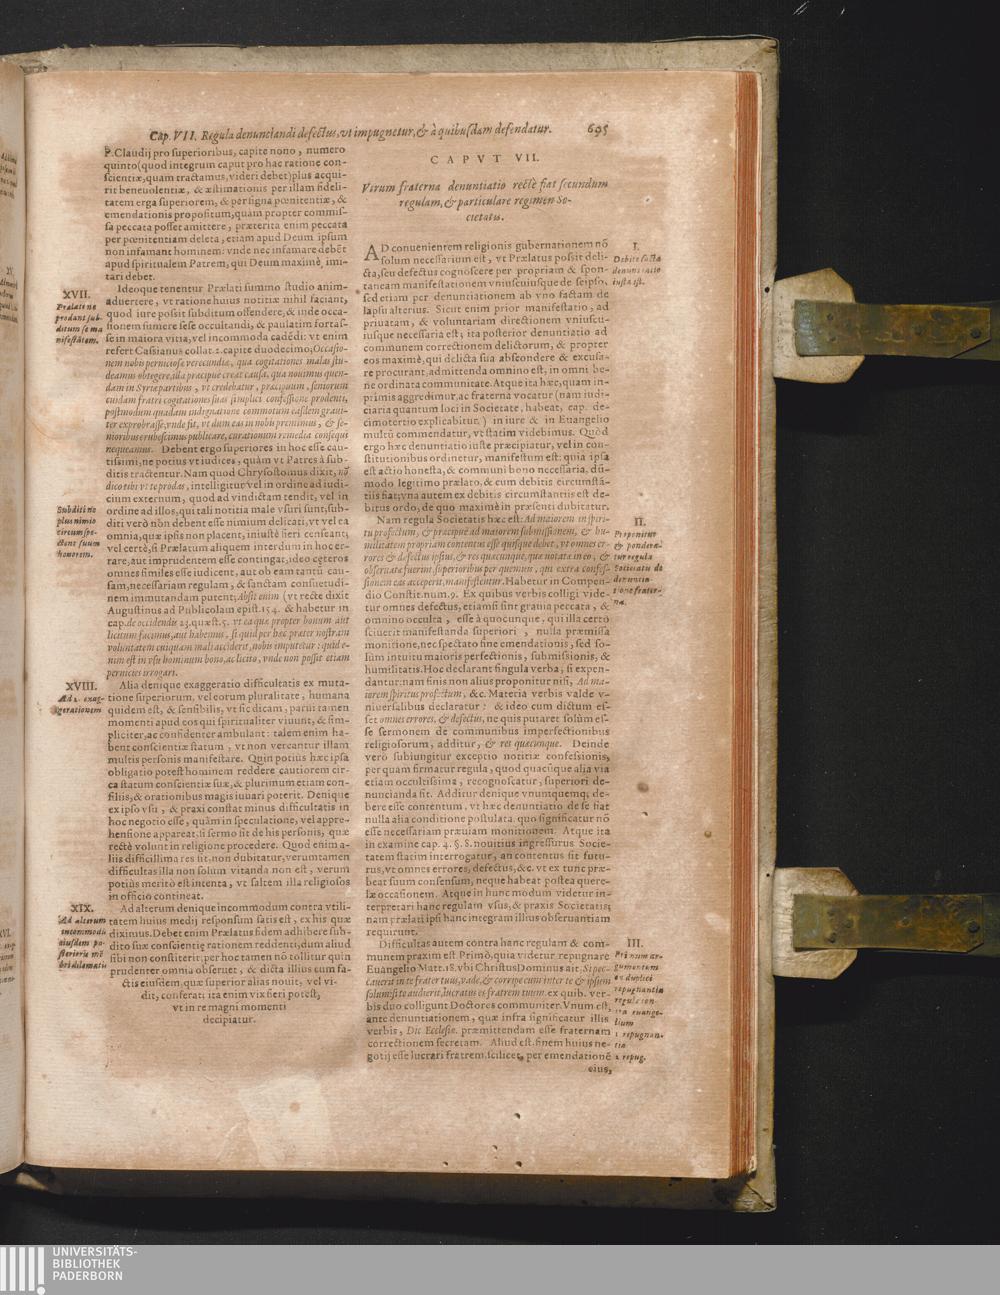 Cap. VII. Regula denunciandi defectus, vt impugnetur, & à quibusdam defendatur. 695
P. Claudij pro superioribus, capite nono, numero
quinto (quod integrum caput pro hac ratione con-
scientiæ, quam tractamus, videri debet) plus acqui-
rit beneuolentiæ, & æstimationis per illam fideli-
tatem erga superiorem, & per signa pœnitentiæ, &
emendationis propositum, quàm propter commis-
sa peccata posset amittere, præterita enim peccata
per pœnitentiam deleta, etiam apud Deum ipsum
non infamant hominem: vnde nec infamare debẽt
apud spiritualem Patrem, qui Deum maximè imi-
tari debet.
XVII.
Prælati ne
prodant sub-
ditum se ma
nifestãtem.
Ideoque tenentur Prælati summo studio anim-
aduertere, vt ratione huius notitiæ nihil faciant,
quod iure possit subditum offendere, & inde occa-
tionem sumere sese occultandi, & paulatim fortas-
se in maiora vitia, vel incommoda cadẽdi: vt enim
refert Cassianus collat. 2. capite duodecimo; Occasio-
nem nobis perniciosæ verecundiæ, qua cogitationes malas stu-
deamus obtegere, illa præcipue creat causa, qua nouimus quen-
dam in Syriæ partibus, vt credebatur, præcipuum, seniorum
cuidam fratri cogitationes suas simplici confessione prodenti,
postmodum quadam indignatione commotum easdem graui-
ter exprobrasse, vnde fit, vt dum eas in nobis premimus, & se-
nioribus erubescimus publicare, curationum remedia consequi
nequeamus. Debent ergo superiores in hoc esse cau-
tissimi, ne potius vt iudices, quàm vt Patres à sub-
ditis tractentur. Nam quod Chrysostomus dixit, nõ
dico tibi vt te prodas, intelligitur vel in ordine ad iudi-
cium externum, quod ad vindictam tendit, vel in
Subditi nõ
plus nimio
circumspe-
ctent suum
honorem.
ordine ad illos, qui tali notitia male vsuri sunt, sub-
diti verò nõn debent esse nimium delicati, vt vel ea
omnia, quæ ipsis non placent, iniustè fieri censeant,
vel certè, si Prælatum aliquem interdum in hoc er-
rare, aut imprudentem esse contingat, ideo cęteros
omnes similes esse iudicent, aut ob eam tantũ cau-
sam, necessariam regulam, & sanctam consuetudi-
nem immutandam putent; Absit enim (vt rectè dixit
Augustinus ad Publicolam epist. 154. & habetur in
cap. de occidendis 23. quæst. 5. vt ea quæ propter bonum aut
licitum facimus, aut habemus, si quid per hæc præter nostram
voluntatem cuiquam mali acciderit, nobis imputetur: quid e-
nim est in vsu hominum bono, ac licito, vnde non possit etiam
pernicies irrogari.
XVIII.
Ad 2. exag-
gerationem
Alia denique exaggeratio difficultatis ex muta-
tione superiorum, vel eorum pluralitate, humana
quidem est, & sensibilis, vt sic dicam, parui tamen
momenti apud eos qui spiritualiter viuunt, & sim-
pliciter, ac confidenter ambulant: talem enim ha-
bent conscientiæ statum, vt non vereantur illam
multis personis manifestare. Quin potius hæc ipsa
obligatio potest hominem reddere cautiorem cir-
ca statum conscientiæ suæ, & plurimum etiam con-
siliis, & orationibus magis iuuari poterit. Denique
ex ipso vsu, & praxi constat minus difficultatis in
hoc negotio esse, quàm in speculatione, vel appre-
hensione appareat, si sermo sit de his personis, quæ
rectè volunt in religione procedere. Quod enim a-
liis difficillima res sit, non dubitatur, verumtamen
difficultas illa non solum vitanda non est, verum
potiùs meritò est intenta, vt saltem illa religiosos
in officio contineat.
XIX.
Ad alterum
incommodũ
eiusdem po-
sterioris mē
bri dilematis
Ad alterum denique incommodum contra vtili-
tatem huius medij responsum satis est, ex his quæ
diximus. Debet enim Prælatus fidem adhibere sub-
dito suæ conscientię rationem reddenti, dum aliud
sibi non constiterit, per hoc tamen nõ tollitur quin
prudenter omnia obseruet, & dicta illius cum fa-
ctis eiusdem, quæ superior alias nouit, vel vi-
dit, conferat: ita enim vix fieri potest,
vt in re magni momenti
decipiatur.
CAPVT VII.
Vtrum fraterna denuntiatio rectè fiat secundum
regulam, & particulare regimen So-
cietatis.
I.
Debite facta
denuntiatio
iusta est.
AD conuenientem religionis gubernationem nõ
solum necessarium est, vt Prælatus possit deli-
cta, seu defectus cognoscere per propriam & spon-
taneam manifestationem vniuscuiusque de seipso,
sed etiam per denuntiationem ab vno factam de
lapsu alterius. Sicut enim prior manifestatio, ad
priuatam, & voluntariam directionem vniuscu-
iusque necessaria est; ita posterior denuntiatio ad
communem correctionem delictorum, & propter
eos maximè, qui delicta sua abscondere & excusa-
re procurant, admittenda omnino est, in omni be-
ne ordinata communitate. Atque ita hæc, quam in-
primis aggredimur, ac fraterna vocatur (nam iudi-
ciaria quantum loci in Societate, habeat, cap. de-
cimotertio explicabitur,) in iure & in Euangelio
multũ commendatur, vt statim videbimus. Quòd
ergo hæc denuntiatio iuste præcipiatur, vel in con-
stitutionibus ordinetur, manifestum est: quia ipsa
est actio honesta, & communi bono necessaria, dũ-
modo legitimo prælato, & cum debitis circumstã-
tiis fiat; vna autem ex debitis circumstantiis est de-
bitus ordo, de quo maximè in præsenti dubitatur.
II.
Proponitur
& pondera-
tur regula
Societatis de
denuntia-
tione frater-
na.
Nam regula Societatis hæc est: Ad maiorem in spiri-
tu profectum, & præcipuè ad maiorem submissionem, & hu-
militatem propriam contentus esse quisque debet, vt omnes er-
rores & defectus ipsius, & res quæcunque, quæ notatæ in eo, &
obseruatæ fuerint, superioribus per quemuis, qui extra confes-
sionem eas acceperit, manifestentur. Habetur in Compen-
dio Constit. num. 9. Ex quibus verbis colligi vide-
tur omnes defectus, etiamsi sint grauia peccata, &
omnino occulta, esse à quocunque, qui illa certò
sciuerit manifestanda superiori, nulla præmissa
monitione, nec spectato fine emendationis, sed so-
lùm intuitu maioris perfectionis, submissionis, &
humilitatis. Hoc declarant singula verba, si expen-
dantur: nam finis non alius proponitur nisi, Ad ma-
iorem spiritus profectum, &c. Materia verbis valde v-
niuersalibus declaratur: & ideo cum dictum es-
set omnes errores, & defectus, ne quis putaret solùm es-
se sermonem de communibus imperfectionibus
religiosorum, additur, & res quæcunque. Deinde
verò subiungitur exceptio notitiæ confessionis,
per quam firmatur regula, quod quacũque alia via
etiam occultissima, recognoscatur, superiori de-
nuncianda sit. Additur denique vnumquemq; de-
bere esse contentum, vt hæc denuntiatio de se fiat
nulla alia conditione postulata, quo significatur nõ
esse necessariam præuiam monitionem. Atque ita
in examine cap. 4. §. 8. nouitius ingressurus Socie-
tatem statim interrogatur, an contentus sit futu-
rus, vt omnes errores, defectus, &c. vt ex tunc præ-
beat suum consensum, neque habeat postea quere-
læ occasionem. Atque in hunc modum videtur in-
terpretari hanc regulam vsus, & praxis Societatis;
nam prælati ipsi hanc integram illius obseruantiam
requirunt.
III.
Primum ar-
gumentum
ex duplici
repugnantia
regulæ con-
tra euange-
lium
1 repugnan-
tia
2 repug.
Difficultas autem contra hanc regulam & com-
munem praxim est Primò, quia videtur repugnare
Euangelio Matt. 18. vbi Christus Dominus ait, Si pec-
cauerit in te frater tuus, vade, & corripe eum inter te & ipsum
solum: si te audierit, lucratus es fratrem tuum. ex quib. ver-
bis duo colligunt Doctores communiter. Vnum est,
ante denuntiationem, quæ infra significatur illis
verbis, Dic Ecclesiæ. præmittendam esse fraternam
correctionem secretam. Aliud est, finem huius ne-
gotij esse lucrari fratrem, scilicet, per emendationẽ
eius,
UNIVERSITÄTS-
BIBLIOTHEK
PADERBORN